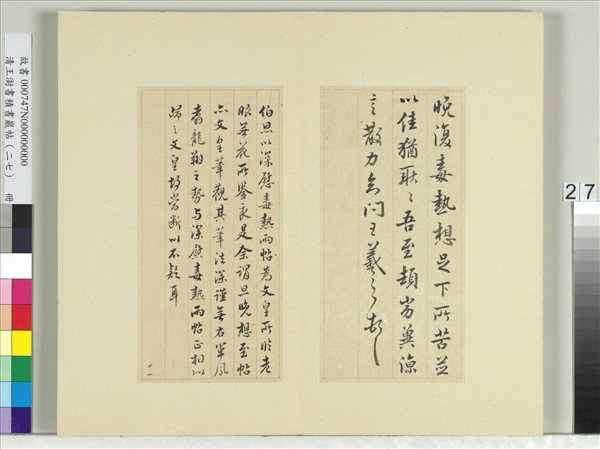 27
晚復毒熱想足下所苦並
以佳猶耿〻吾至頓劣冀涼
言散力知問王羲之頓首
伯思以深慰毒熱兩帖為文皇所臨老
眼無花所鑒良是余謂旦晚想至帖
亦文皇筆觀其筆法深謹無右軍鳳
翥龍翔之勢與深慰毒熱兩帖正相似
歸之文皇故當斷以不疑耳
故書 000747N000000000 冊
清王澍書積書巖帖(二七)